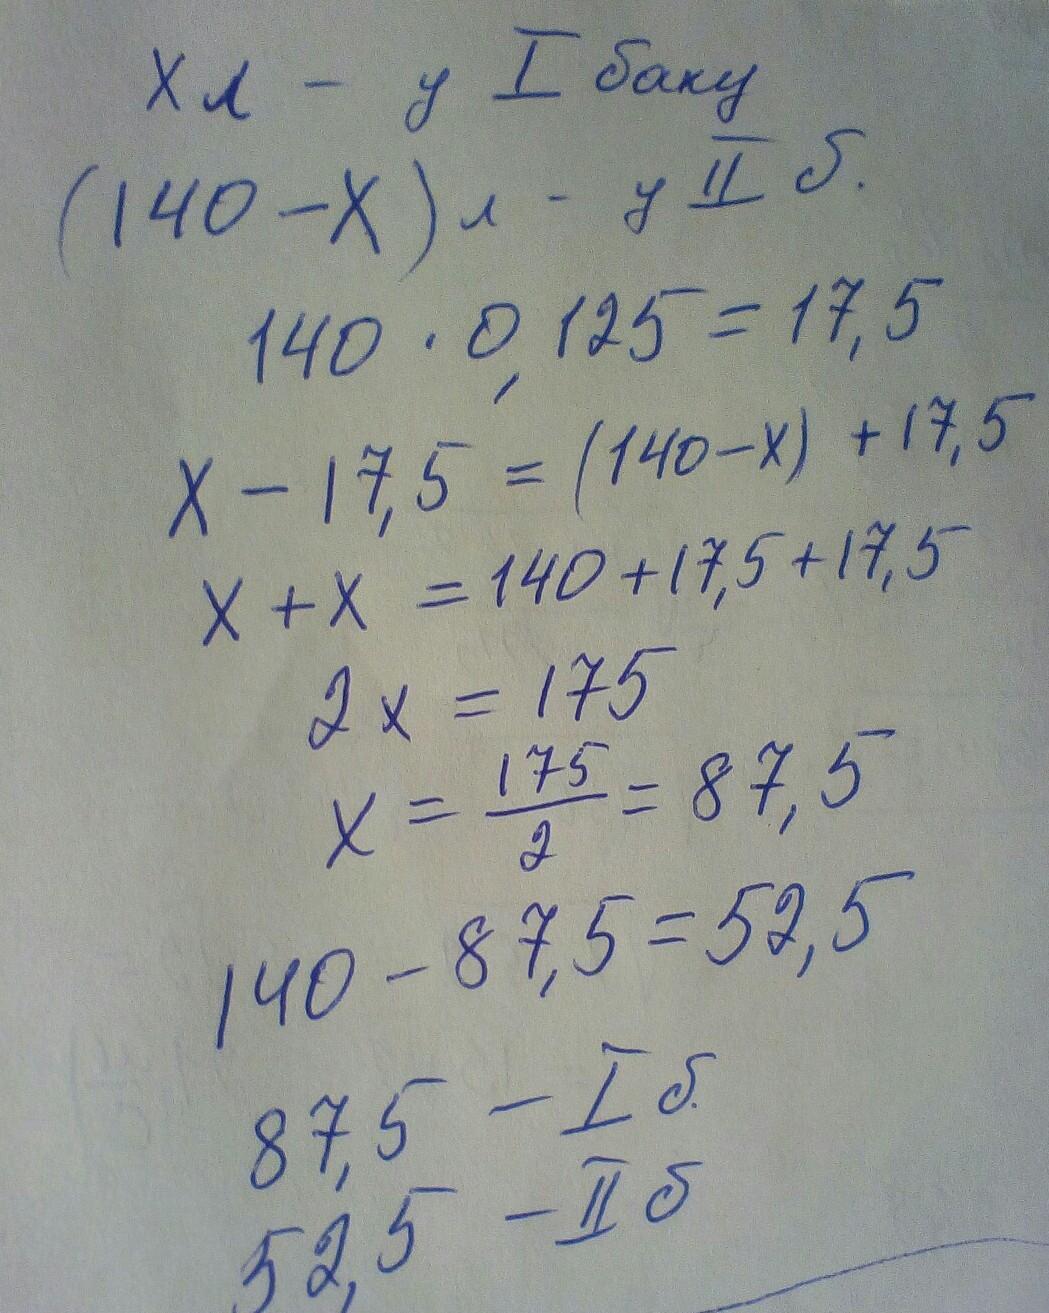 x л - у I баку
(140 - x) л - у II б.
140 · 0,125 = 17,5
x - 17,5 = (140 - x) + 17,5
x + x = 140 + 17,5 + 17,5
2x = 175
x = 175/2 = 87,5
140 - 87,5 = 52,5
87,5 - I б.
52,5 - II б